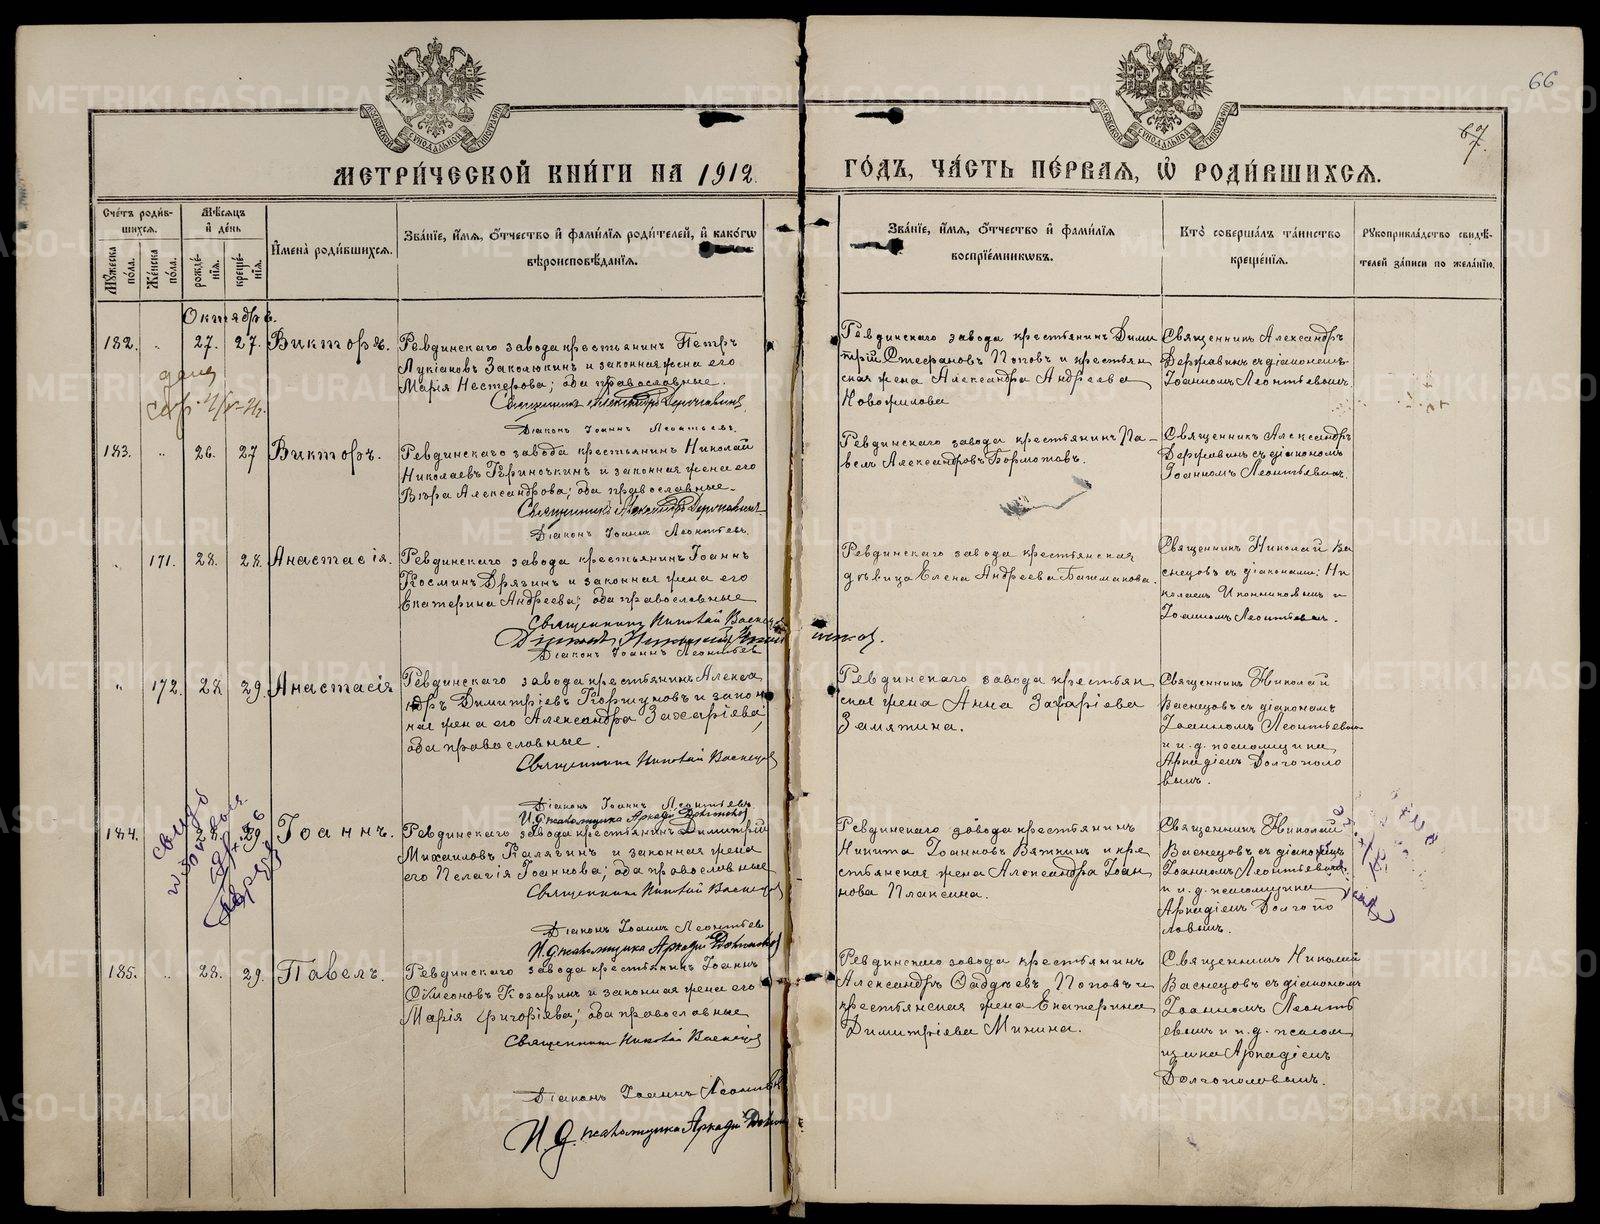 66
67.
МЕТРИ́ЧЕСКОЙ КНИ́ГИ НА 1912. ГО́ДЪ, ЧА́СТЬ ПЕ́РВАЯ, Ѡ РОДИ́ВШИХСЯ.
Сче́тъ роди́в-
шихся.
Мѣ́сяцъ
и де́нь
Му́жеска по́ла.
Же́нска по́ла.
рожде́-
нїя.
креще́-
нїя.
Имена̀ роди́вшихся.
Зва́нїе, и́мя, о́тчество и фами́лїя роди́телей, и како́гѡ
вѣроисповѣ́данїя.
Зва́нїе, и́мя, о́тчество и фами́лїя
воспрїе́мникѡвъ.
Кто̀ соверша́лъ та́инство
креще́нїя.
Рꙋкоприкла́дство свидѣ́-
телей за́писи по жела́нїю.
Октябрь.
182. " 27. 27. Викторъ.
Ревдинскаго завода крестьянинъ Петръ
Лукіановъ Заколюкинъ и законная жена его
Марія Нестерова; оба православные.
Священникъ Александръ Державинъ
Діаконъ Іоаннъ Леонтьевъ.
Ревдинскаго завода крестьянинъ Дими
трій Стефановъ Поповъ и крестьян
ская жена Александра Андреева
Новожилова
Священникъ Александръ
Державинъ съ діакономъ
Іоанномъ Леонтьевымъ.
183. " 26. 27 Викторъ.
Ревдинскаго завода крестьянинъ Николай
Николаевъ и законная жена его
Вѣра Александрова; оба православные.
Священникъ Александръ Державинъ
Діаконъ Іоаннъ Леонтьевъ
Ревдинскаго завода крестьянинъ Па-
велъ Александровъ Бормотовъ.
Священникъ Александръ
Державинъ съ діакономъ
Іоанномъ Леонтьевымъ.
" 171. 28. 28. Анастасія.
Ревдинскаго завода крестьянинъ Іоаннъ
Косминъ Дрягинъ и законная жена его
Екатерина Андреева; оба православные
Священникъ Николай Васнецов
Діаконъ
Діаконъ Іоаннъ Леонтьев
Ревдинскаго завода крестьянская
дѣвица Елена Андреева Башмакова.
Священникъ Николай Ва
снецовъ съ діаконами: Ни
колаемъ Иконниковымъ и
Іоанномъ Леонтьевым.
" 172. 28. 29. Анастасія
Ревдинскаго завода крестьянинъ Алекса
ндръ Димитріевъ Коршуновъ и закон
ная жена его Александра Захаріева;
оба православные.
Священникъ Николай Васнецов
Діаконъ Іоаннъ Леонтьевъ.
И. д. псаломщика Аркадій
Ревдинскаго завода крестьян
ская жена Анна Захаріева
Замятина.
Священникъ Николай
Васнецовъ съ діакономъ
Іоанномъ Леонтьевым
и и. д. псаломщика
Аркадіемъ Долгополо
вымъ.
184. 28. 29. Іоаннъ.
Ревдинскаго завода крестьянинъ Димитрій
Михаиловъ Калягинъ и законная жена
его Пелагія Іоаннова; оба православные
Священникъ Николай Васнецов
Діаконъ Іоаннъ Леонтьев
И. д. псаломщика Аркадій
Ревдинскаго завода крестьянинъ
Никита Іоанновъ Вяткинъ и кре
стьянская жена Александра Іоан
нова Плаксина.
Священникъ Николай
Васнецовъ съ діакономъ
Іоанномъ Леонтьевым
и и. д. псаломщика
Аркадіемъ Долгопо
ловымъ.
185. " 28. 29. Павелъ.
Ревдинскаго завода крестьянинъ Іоаннъ
Сѵмеоновъ Козаринъ и законная жена его
Марія Григоріева; оба православные
Священникъ Николай Васнецов
Діаконъ Іоаннъ Леонтьев
И. д. псаломщика Аркадій
Ревдинскаго завода крестьянинъ
Александръ Фаддѣевъ Поповъ и
крестьянская жена Екатерина
Димитріева Минина.
Священникъ Николай
Васнецовъ съ діакономъ
Іоанномъ Леонть
евымъ и и. д. псалом
щика Аркадіемъ
Долгополовымъ.
METRIKI.GASO-URAL.RU